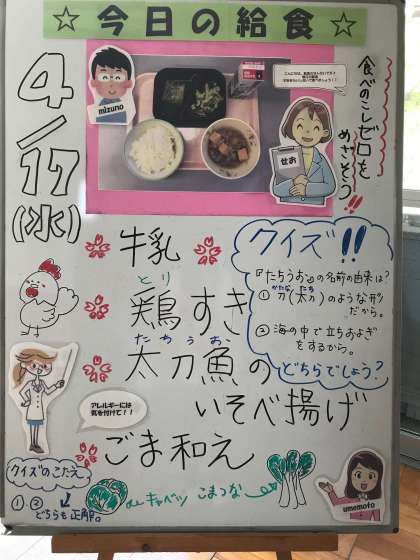 ☆今日の給食☆
mizuno
せお
食べのこしゼロを
めざそう!!
4/17
(水)
牛乳
とり
鶏すき
たちうお
太刀魚の
いそべ揚げ
ごま和え
クイズ!!
『たちうお』の名前の由来は?
かたな たち
①刀(太刀)のような形
だから。
②海の中で立ちおよぎ
をするから。
どちらでしょう?
アレルギーには
気を付けて!!
クイズのこたえ
①.②
どちらも正解。
キャベツ こまつな
umemoto